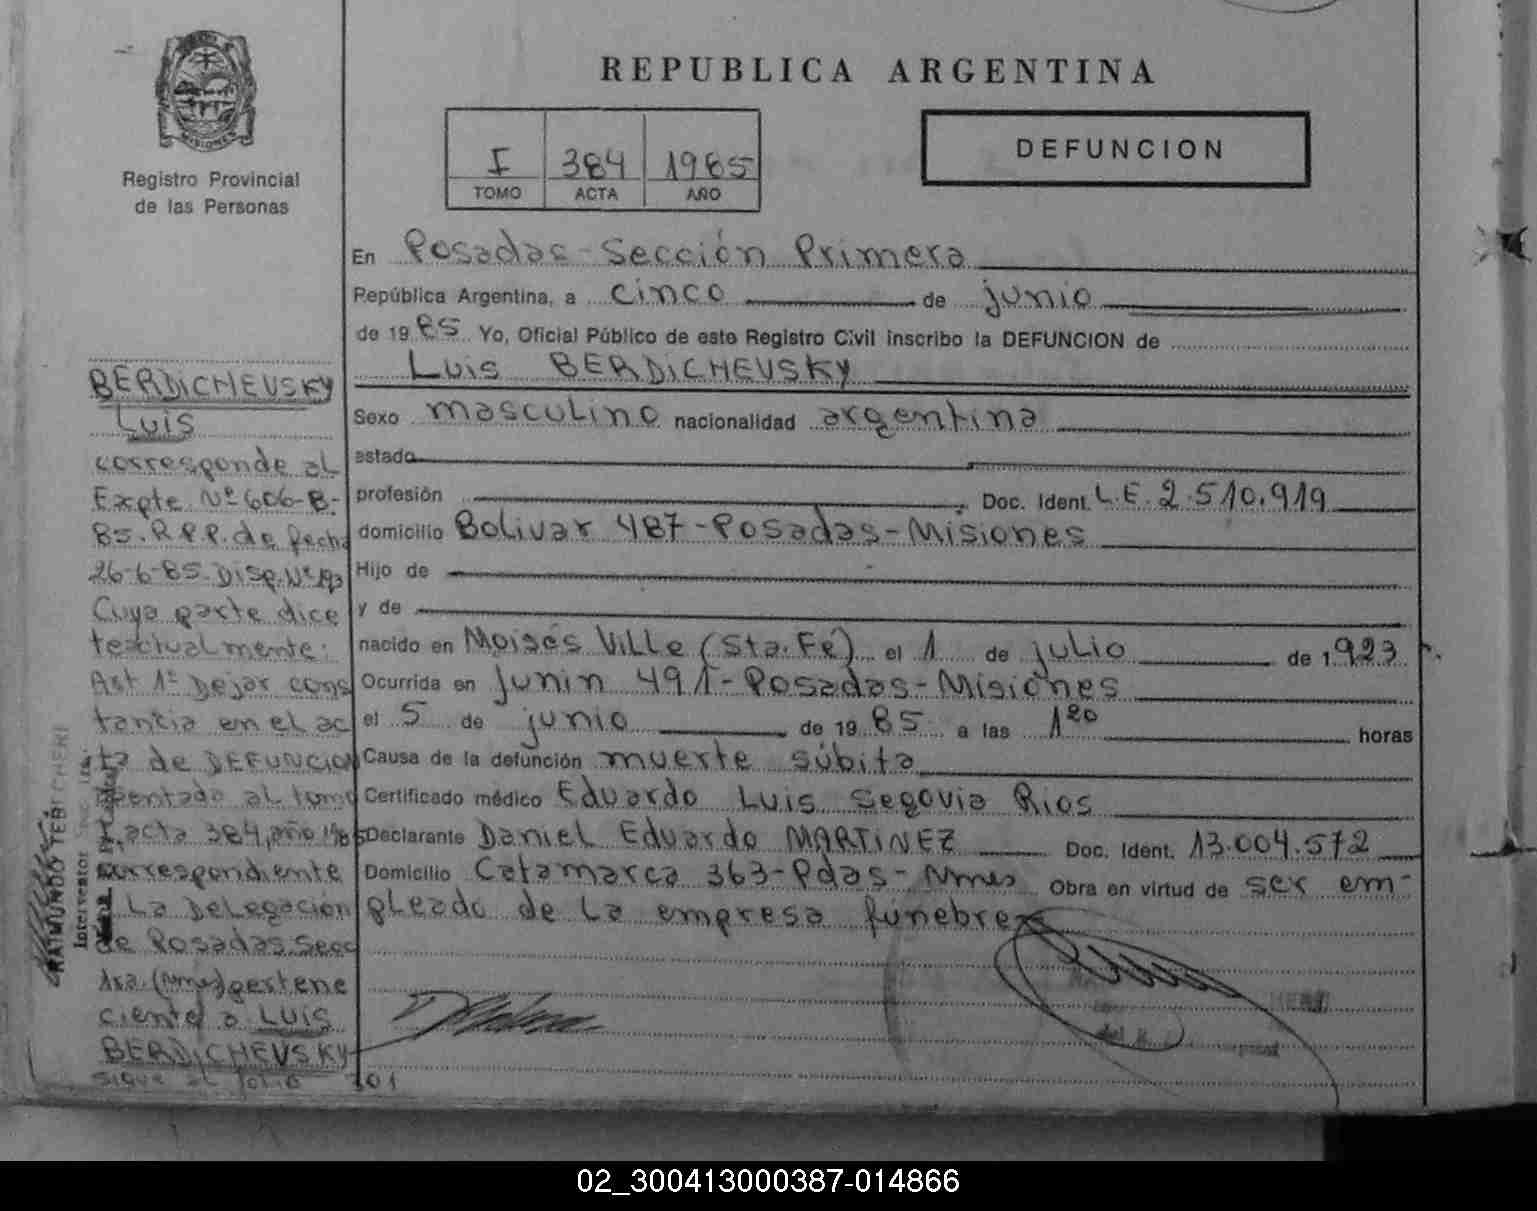 MISIONES
Registro Provincial
de las Personas
REPUBLICA ARGENTINA
I 384 1985
TOMO ACTA AÑO
DEFUNCION
En Posadas-Sección Primera
República Argentina, a cinco de junio
de 1985 Yo, Oficial Público de este Registro Civil inscribo la DEFUNCION de
Luis BERDICHEVSKY
Sexo masculino nacionalidad argentina
estado
profesión Doc. Ident. L.E. 2.510.919
domicilio Bolivar 487-Posadas-Misiones
Hijo de
y de
nacido en Moisés Ville (Sta. Fé) el 1 de julio de 1923
Ocurrida en Junin 491-Posadas-Misiones
el 5 de junio de 1985 a las 1²⁰ horas
Causa de la defunción muerte súbita
Certificado médico Eduardo Luis Segovia Rios
Declarante Daniel Eduardo MARTINEZ Doc. Ident. 13.004.572
Domicilio Catamarca 363-Pdas-Mnes Obra en virtud de ser em-
pleado de la empresa fúnebre
BERDICHEVSKY
Luis
corresponde al
Expte Nº 606-B-
85.R.P.P. de fecha
26-6-85. Disp. Nº
Cuya parte dice
textualmente:
Art 1º Dejar cons
tancia en el ac
ta de DEFUNCION
asentado al tomo
I, acta 384, año 1985
correspondiente
a La Delegación
de Posadas. Secc
1ra. (Mnes) pertene
ciente a LUIS
BERDICHEVSKY
sigue al folio 701
RAIMUNDO TEBI
Interventor
02_300413000387-014866